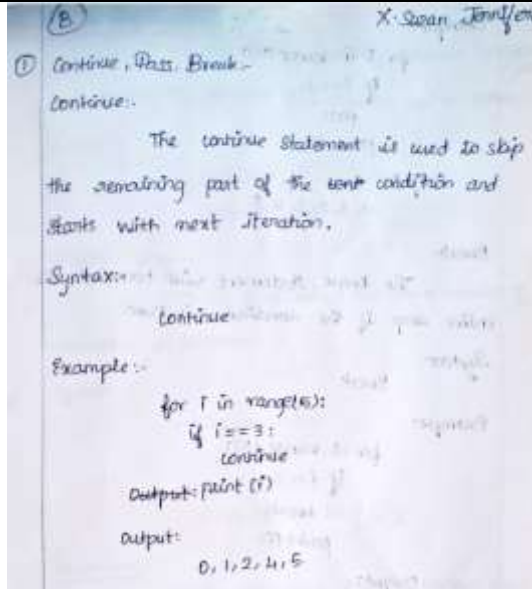 B
X. Swan Jennifer
① Continue, Pass, Break:-
Continue:-
The continue statement is used to skip
the remaining part of the condition and
starts with next iteration.
Syntax:-
continue
Example:-
for i in range(5):
if i==3:
continue
print (i)
output:
0, 1, 2, 4, 5